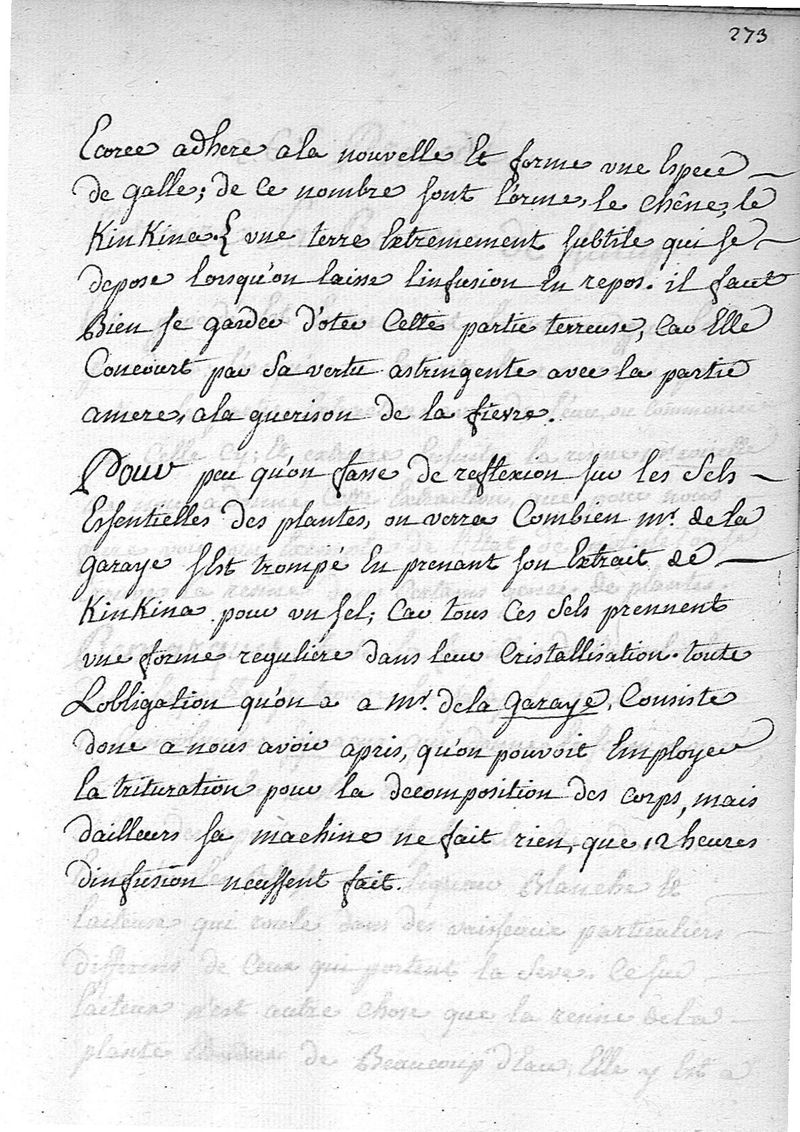 273
Ecorce adhere a la nouvelle Et forme vne Espece
de galle; de ce nombre sont l'orme, le chêne, le
KinKina. { vne terre Extremement subtile qui se
depose lorsqu'on laisse linfusion En repos. il faut
Bien se garder d'oter Cette partie terreuse, Car Elle
Concourt par Sa vertu astringente avec la partie
amere, a la guerison de la fievre.
Pour peu qu'on fasse de reflexion sur les Sels
Essentielles des plantes, on verra Combien mr. de la
garaye sEst trompé En prenant son Extrait de
KinKina pour vn sel; Car tous Ces Sels prennent
vne forme reguliére dans leur Cristallisation. toute
Lobligation qu'on a a Mr. de la Garaye, Consiste
donc a nous avoir apris, qu'on pouvoit Employer
la trituration pour la decomposition des corps, mais
dailleurs sa machine ne fait rien, que 12 heures
dinfusion neussent fait.
liqueur Blanche Et
laiteuse qui roule dans des vaisseaux particuliers
differens de Ceux qui portent la Seve. Ce suc
laiteux n'est autre chose que la resine de la
plante de Beaucoup d'Eau, Elle y Est a